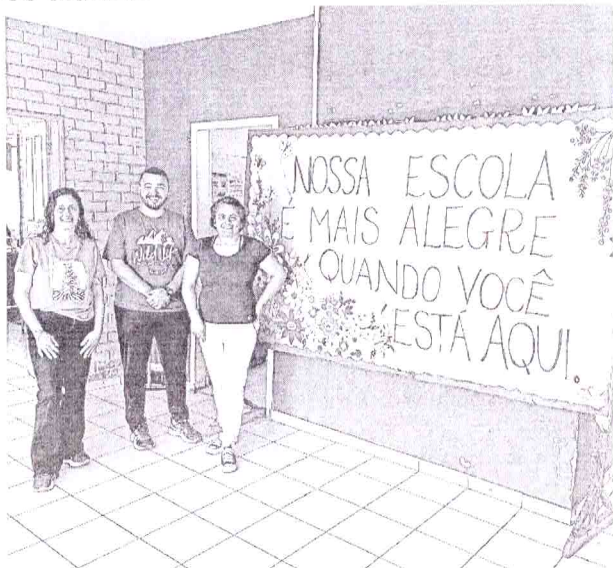 NOSSA ESCOLA
É MAIS ALEGRE
QUANDO VOCÊ
ESTÁ AQUI.